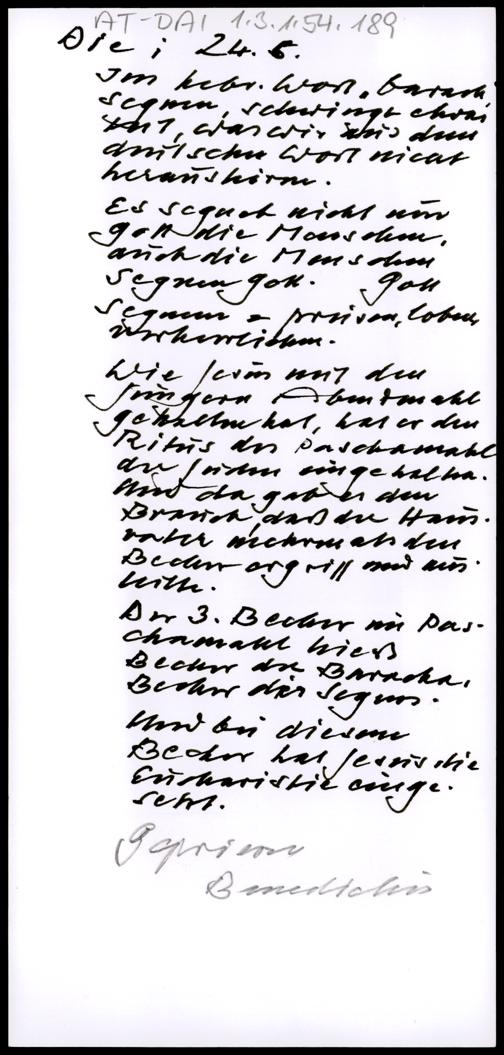 AT-DAI 1.3.1.54.189
Die ; 24. 6.
Im hebr. Wort „barach
segnen, schwingt etwas
mit, was wir aus dem
deutschen Wort nicht
heraushören.
Es segnet nicht nur
Gott die Menschen,
auch die Menschen
segnen Gott. Gott
segnen = preisen, loben,
verherrlichen.
Wie Jesus mit den
Jüngern Abendmahl
gehalten hat, hat er den
Ritus des Paschamahl
der Juden eingehalten.
Und da gab es den
Brauch, daß der Haus-
vater mehrmals den
Becher ergriff und aus-
teilte.
Der 3. Becher im Pas-
chamahl hieß
Becher der Baracha,
Becher des Segens.
Und bei diesem
Becher hat Jesus die
Eucharistie einge-
setzt.
Benedictus